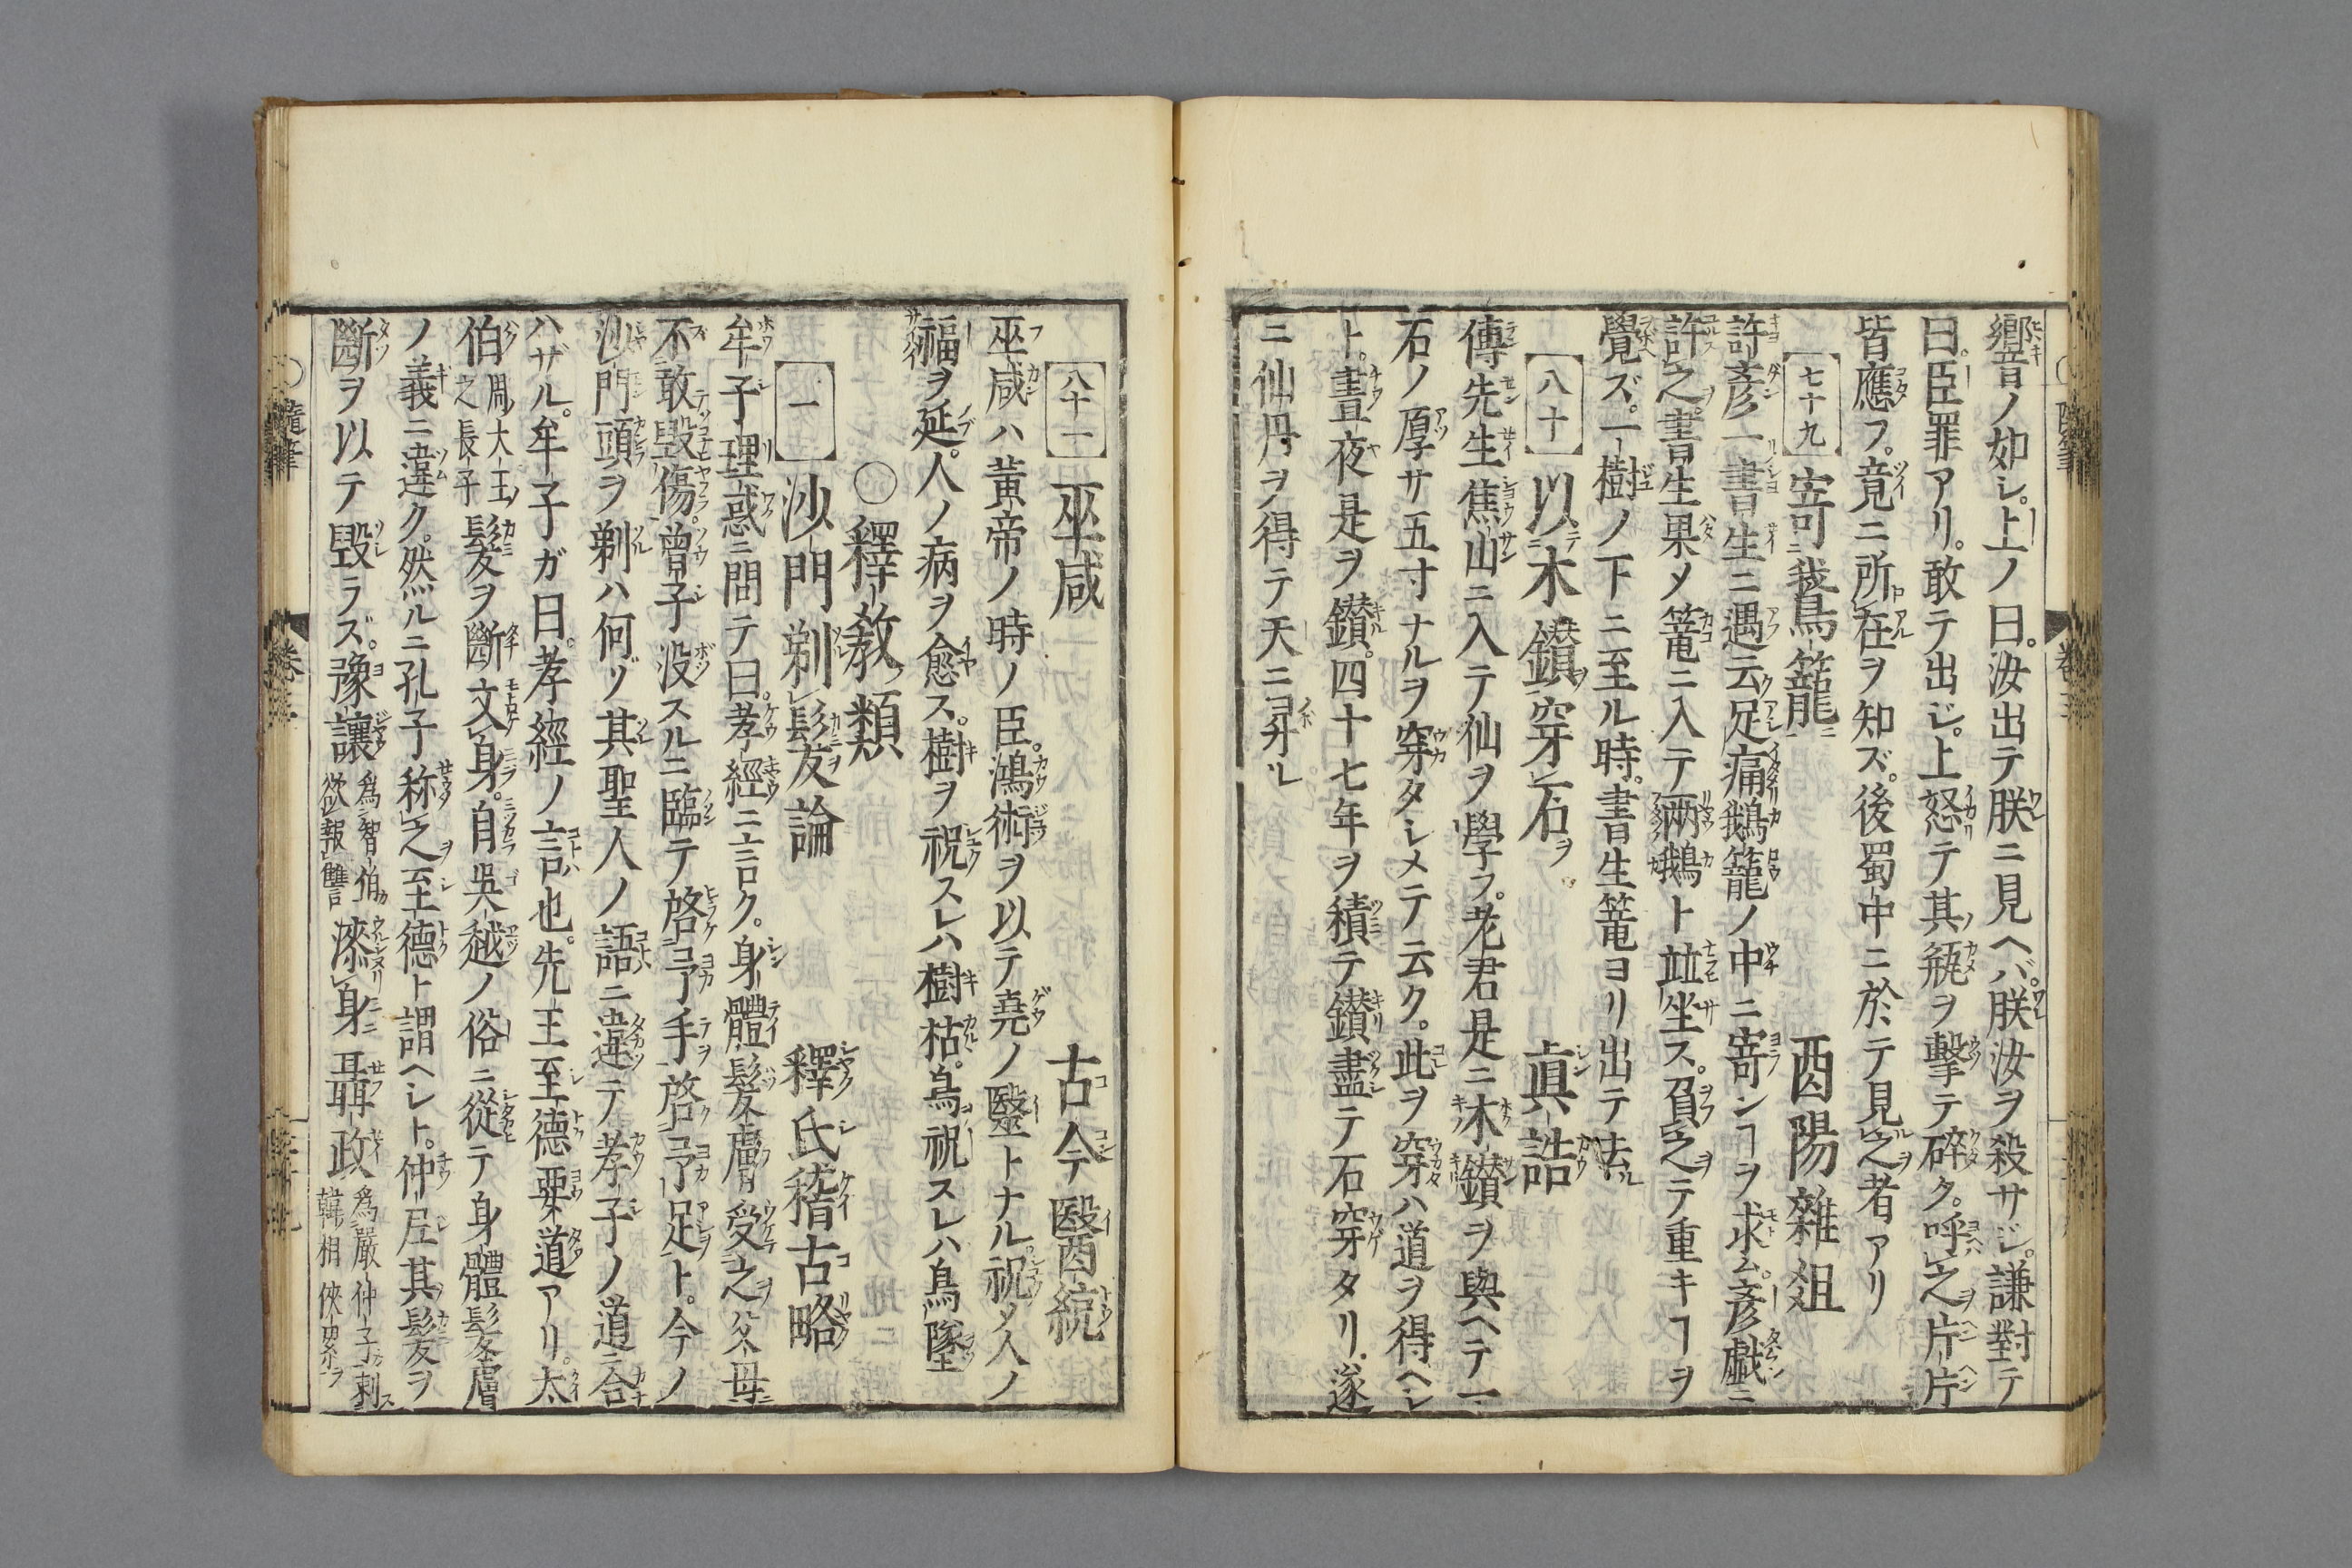 響ノ如シ。上ノ曰。汝出テ朕ニ見ヘバ。朕汝ヲ殺サジ。謙對テ
曰。臣罪アリ。敢テ出ジ。上怒テ其瓶ヲ擊テ碎ク。呼之片片
皆應フ。竟ニ所在ヲ知ズ。後蜀中ニ於テ見之者アリ
七十九 寄鵞籠 酉陽雜俎
許彥一書生ニ遇云足痛鵝籠ノ中ニ寄ンヿヲ求ム。彥戲ニ
許之。書生果メ篭ニ入テ兩鵝ト竝坐ス。負之テ重キヿヲ
覺ズ。一樹ノ下ニ至ル時。書生篭ヨリ出テ去ル
八十 以木鑚穿石ヲ 眞誥
傳先生焦山ニ入テ仙ヲ學フ。老君是ニ木鑚ヲ與ヘテ一
石ノ厚サ五寸ナルヲ穿タシメテ云ク。此ヲ穿ハ道ヲ得ヘシ
ト。晝夜是ヲ鑚。四十七年ヲ積テ鑚盡テ石穿タリ。遂
ニ仙丹ヲ得テ天ニ昇ル
八十一 巫咸 古今醫統
巫咸ハ黃帝ノ時ノ臣。鴻術ヲ以テ堯ノ醫トナル。祝メ人ノ
福ヲ延。人ノ病ヲ愈ス。樹ヲ祝スレハ樹枯。鳥祝スレハ鳥墜
○釋教類
一 沙門剃髮論 釋氏稽古略
牟子理惑ニ問テ曰。孝經ニ言ク。身體髮膚受之父母
不敢毀傷。曾子没スルニ臨テ啓予手啓予足ト。今ノ
沙門頭ヲ剃ハ何ゾ其聖人ノ語ニ違テ孝子ノ道ニ合
ハザル。牟子ガ曰。孝經ノ言也。先王至德要道アリ。太
伯 周ノ大王ノ之長子 髮ヲ斷文身。自吳越ノ俗ニ從テ身體髮膚
ノ義ニ違ク。然ルニ孔子称之至德ト謂ヘシト。仲尼其髮ヲ
斷ヲ以テ毀ラズ。豫讓 爲智伯欲報讐 漆身聶政 爲嚴仲子刺韓相俠累
隨筆
卷三